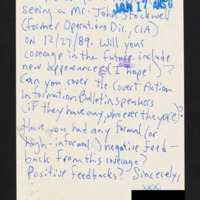 JAN 17 ANS'D
seeing a Mr. John Stockwell
(Former Operations Dir., CIA)
on 12/27/89. Will your
coverage in the future include
new appearances (I hope!)?
Can you cover the Covert Action
Information Bulletin speakers
(if they have any, whoever they are)?
Have you had any formal (or
high-informal) negative feed-
back from this coverage?
Positive feedbacks? Sincerely,
xxx